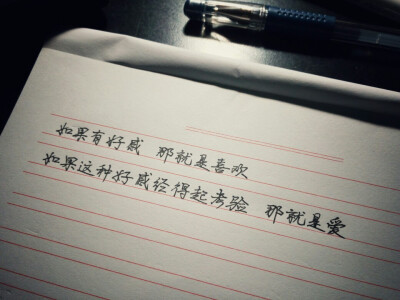 如果有好感 那就是喜欢
如果这种好感经得起考验 那就是爱